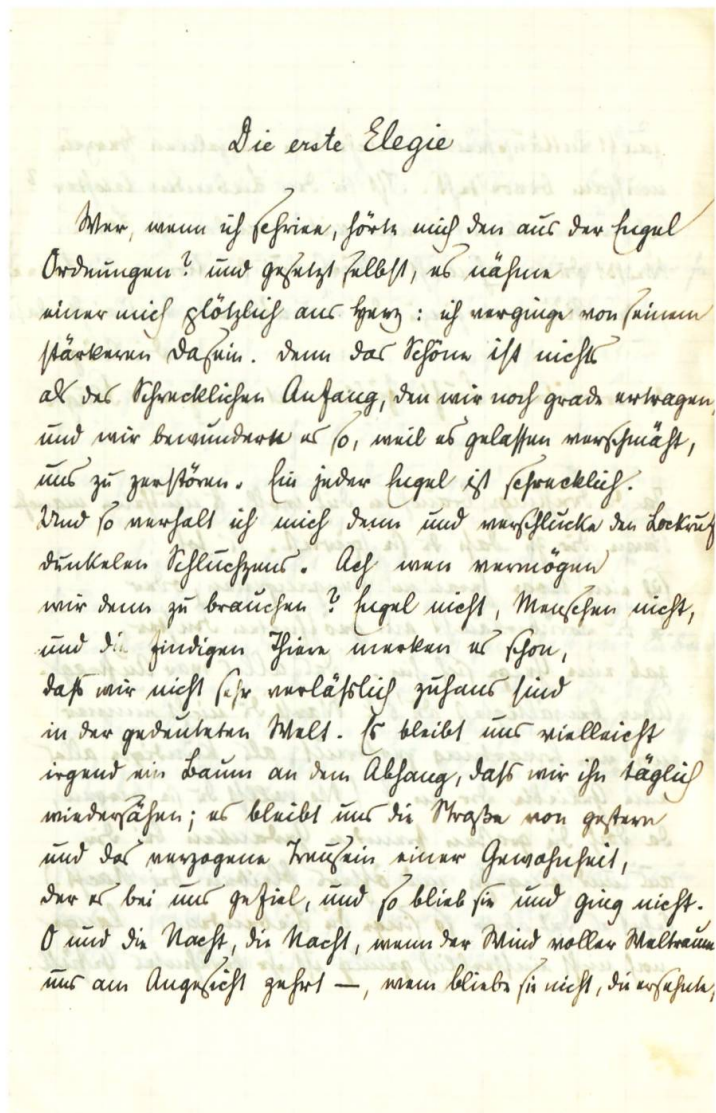 Die erste Elegie
Wer, wenn ich schriee, hörte mich den aus der Engel
Ordnungen? und gesetzt selbst, es nähme
einer mich plötzlich ans Herz: ich verginge von seinem
stärkeren Dasein. Denn das Schöne ist nichts
als des Schrecklichen Anfang, den wir noch grade ertragen,
und wir bewundern es so, weil es gelassen verschmäht,
uns zu zerstören. Ein jeder Engel ist schrecklich.
Und so verhalt ich mich denn und verschlucke den Lockruf
dunkelen Schluchzens. Ach wen vermögen
wir denn zu brauchen? Engel nicht, Menschen nicht,
und die findigen Thiere merken es schon,
dass wir nicht sehr verlässlich zuhaus sind
in der gedeuteten Welt. Es bleibt uns vielleicht
irgend ein Baum an dem Abhang, dass wir ihn täglich
wiedersähen; es bleibt uns die Straße von gestern
und das verzogene Treusein einer Gewohnheit,
der es bei uns gefiel, und so blieb sie und ging nicht.
O und die Nacht, die Nacht, wenn der Wind voller Weltraum
uns am Angesicht zehrt —, wem bliebe sie nicht, die ersehnte,